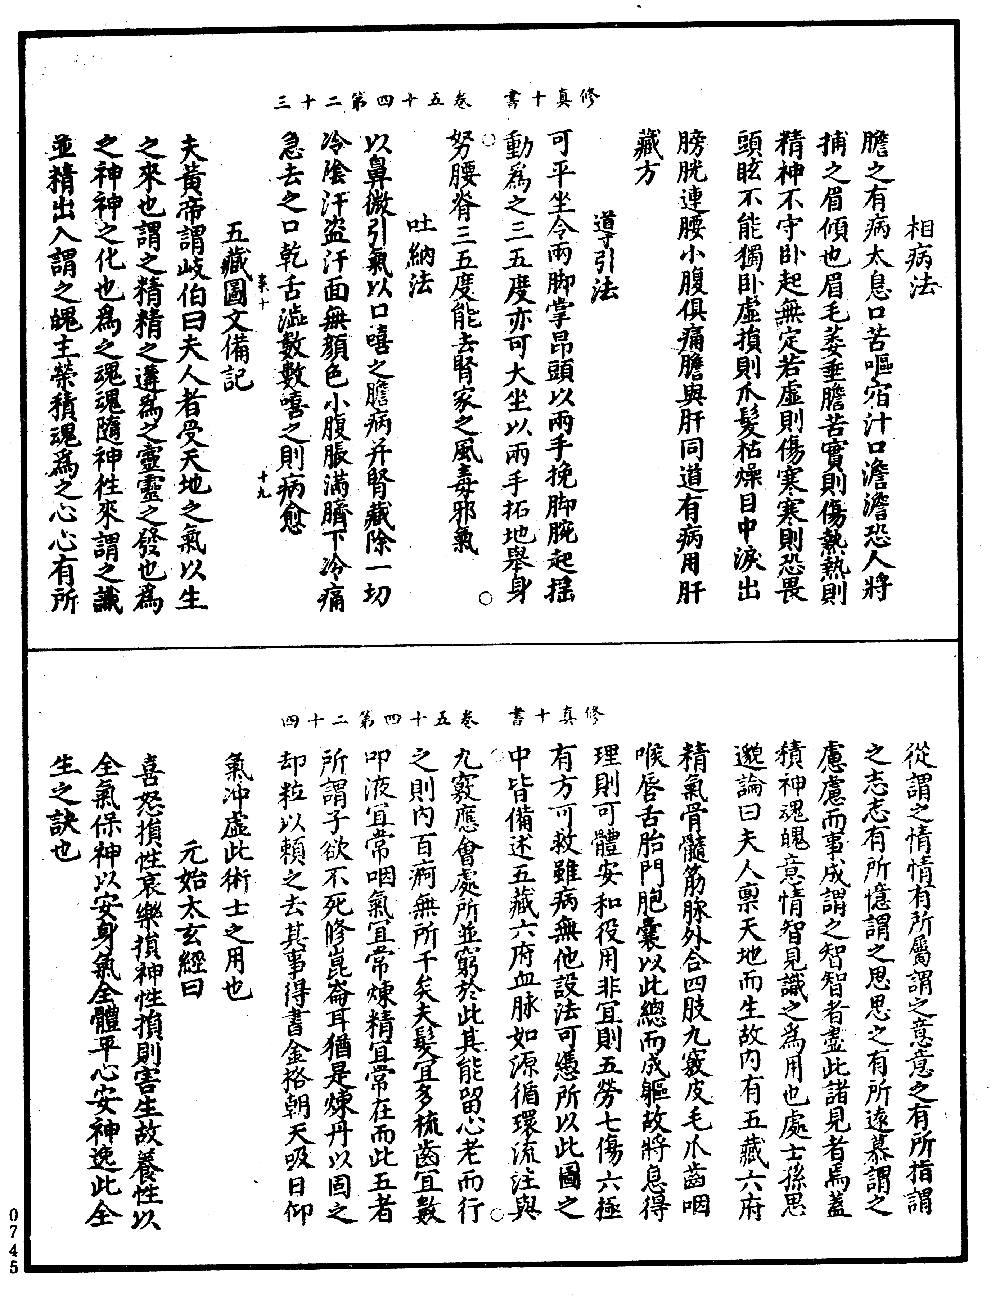 修真十書　卷五十四第二十三
相病法
膽之有病太息口苦嘔宿汁口澹澹恐人將
捕之眉傾也眉毛萎垂膽苦實則傷熱熱則
精神不守卧起無定若虛則傷寒寒則恐畏
頭眩不能獨卧虛損則爪髮枯燥目中淚出
膀胱連腰小腹俱痛膽與肝同道有病用肝
藏方
導引法
可平坐令兩脚掌昂頭以兩手挽脚腕起搖
動為之三五度亦可大坐以兩手拓地舉身
努腰脊三五度能去腎家之風毒邪氣
吐納法
以鼻微引氣以口嘻之膽病并腎藏除一切
冷陰汗盜汗面無顏色小腹脹滿臍下冷痛
急去之口乾舌澁數數嘻之則病愈
十九
五藏圖文備記
夫黃帝謂岐伯曰夫人者受天地之氣以生
之來也謂之精精之遘為之靈靈之發也為
之神神之化也為之魂魂隨神性來謂之識
並精出入謂之魄主榮積魂為之心心有所
修真十書　卷五十四第二十四
從謂之情情有所屬謂之意意之有所指謂
之志志有所憶謂之思思之有所遠慕謂之
慮慮而事成謂之智智者盡此諸見者焉蓋
積神魂魄意情智見識之為用也處士孫思
邈論曰夫人稟天地而生故內有五藏六府
精氣骨髓筋脉外合四肢九竅皮毛爪齒咽
喉唇舌胎門胞囊以此總而成軀故將息得
理則可體安和役用非宜則五勞七傷六極
有方可救雖病無他設法可憑所以此圖之
中皆備述五藏六府血脉如源循環流注與
九竅應會處所並窮於此其能留心老而行
之則內百痾無所干矣夫髮宜多梳齒宜數
叩液宜常咽氣宜常煉精宜常在而此五者
所謂子欲不死修崑崙耳猶是煉丹以固之
却粒以賴之去其事得書金格朝天吸日仰
氣沖虛此術士之用也
元始太玄經曰
喜怒損性哀樂損神性損則害生故養性以
全氣保神以安身氣全體平心安神逸此全
生之訣也
0745